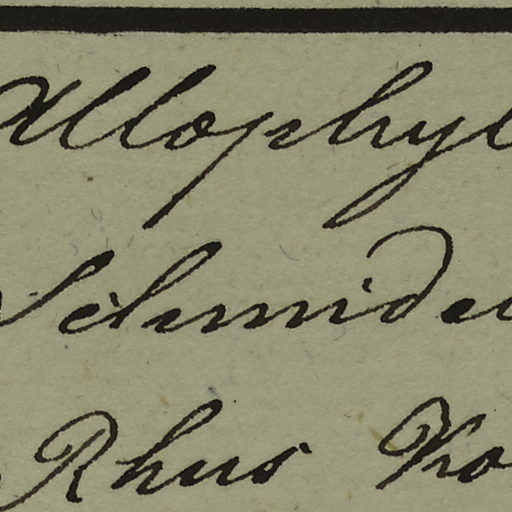 Allophyl
Schmidel
Rhus Ko